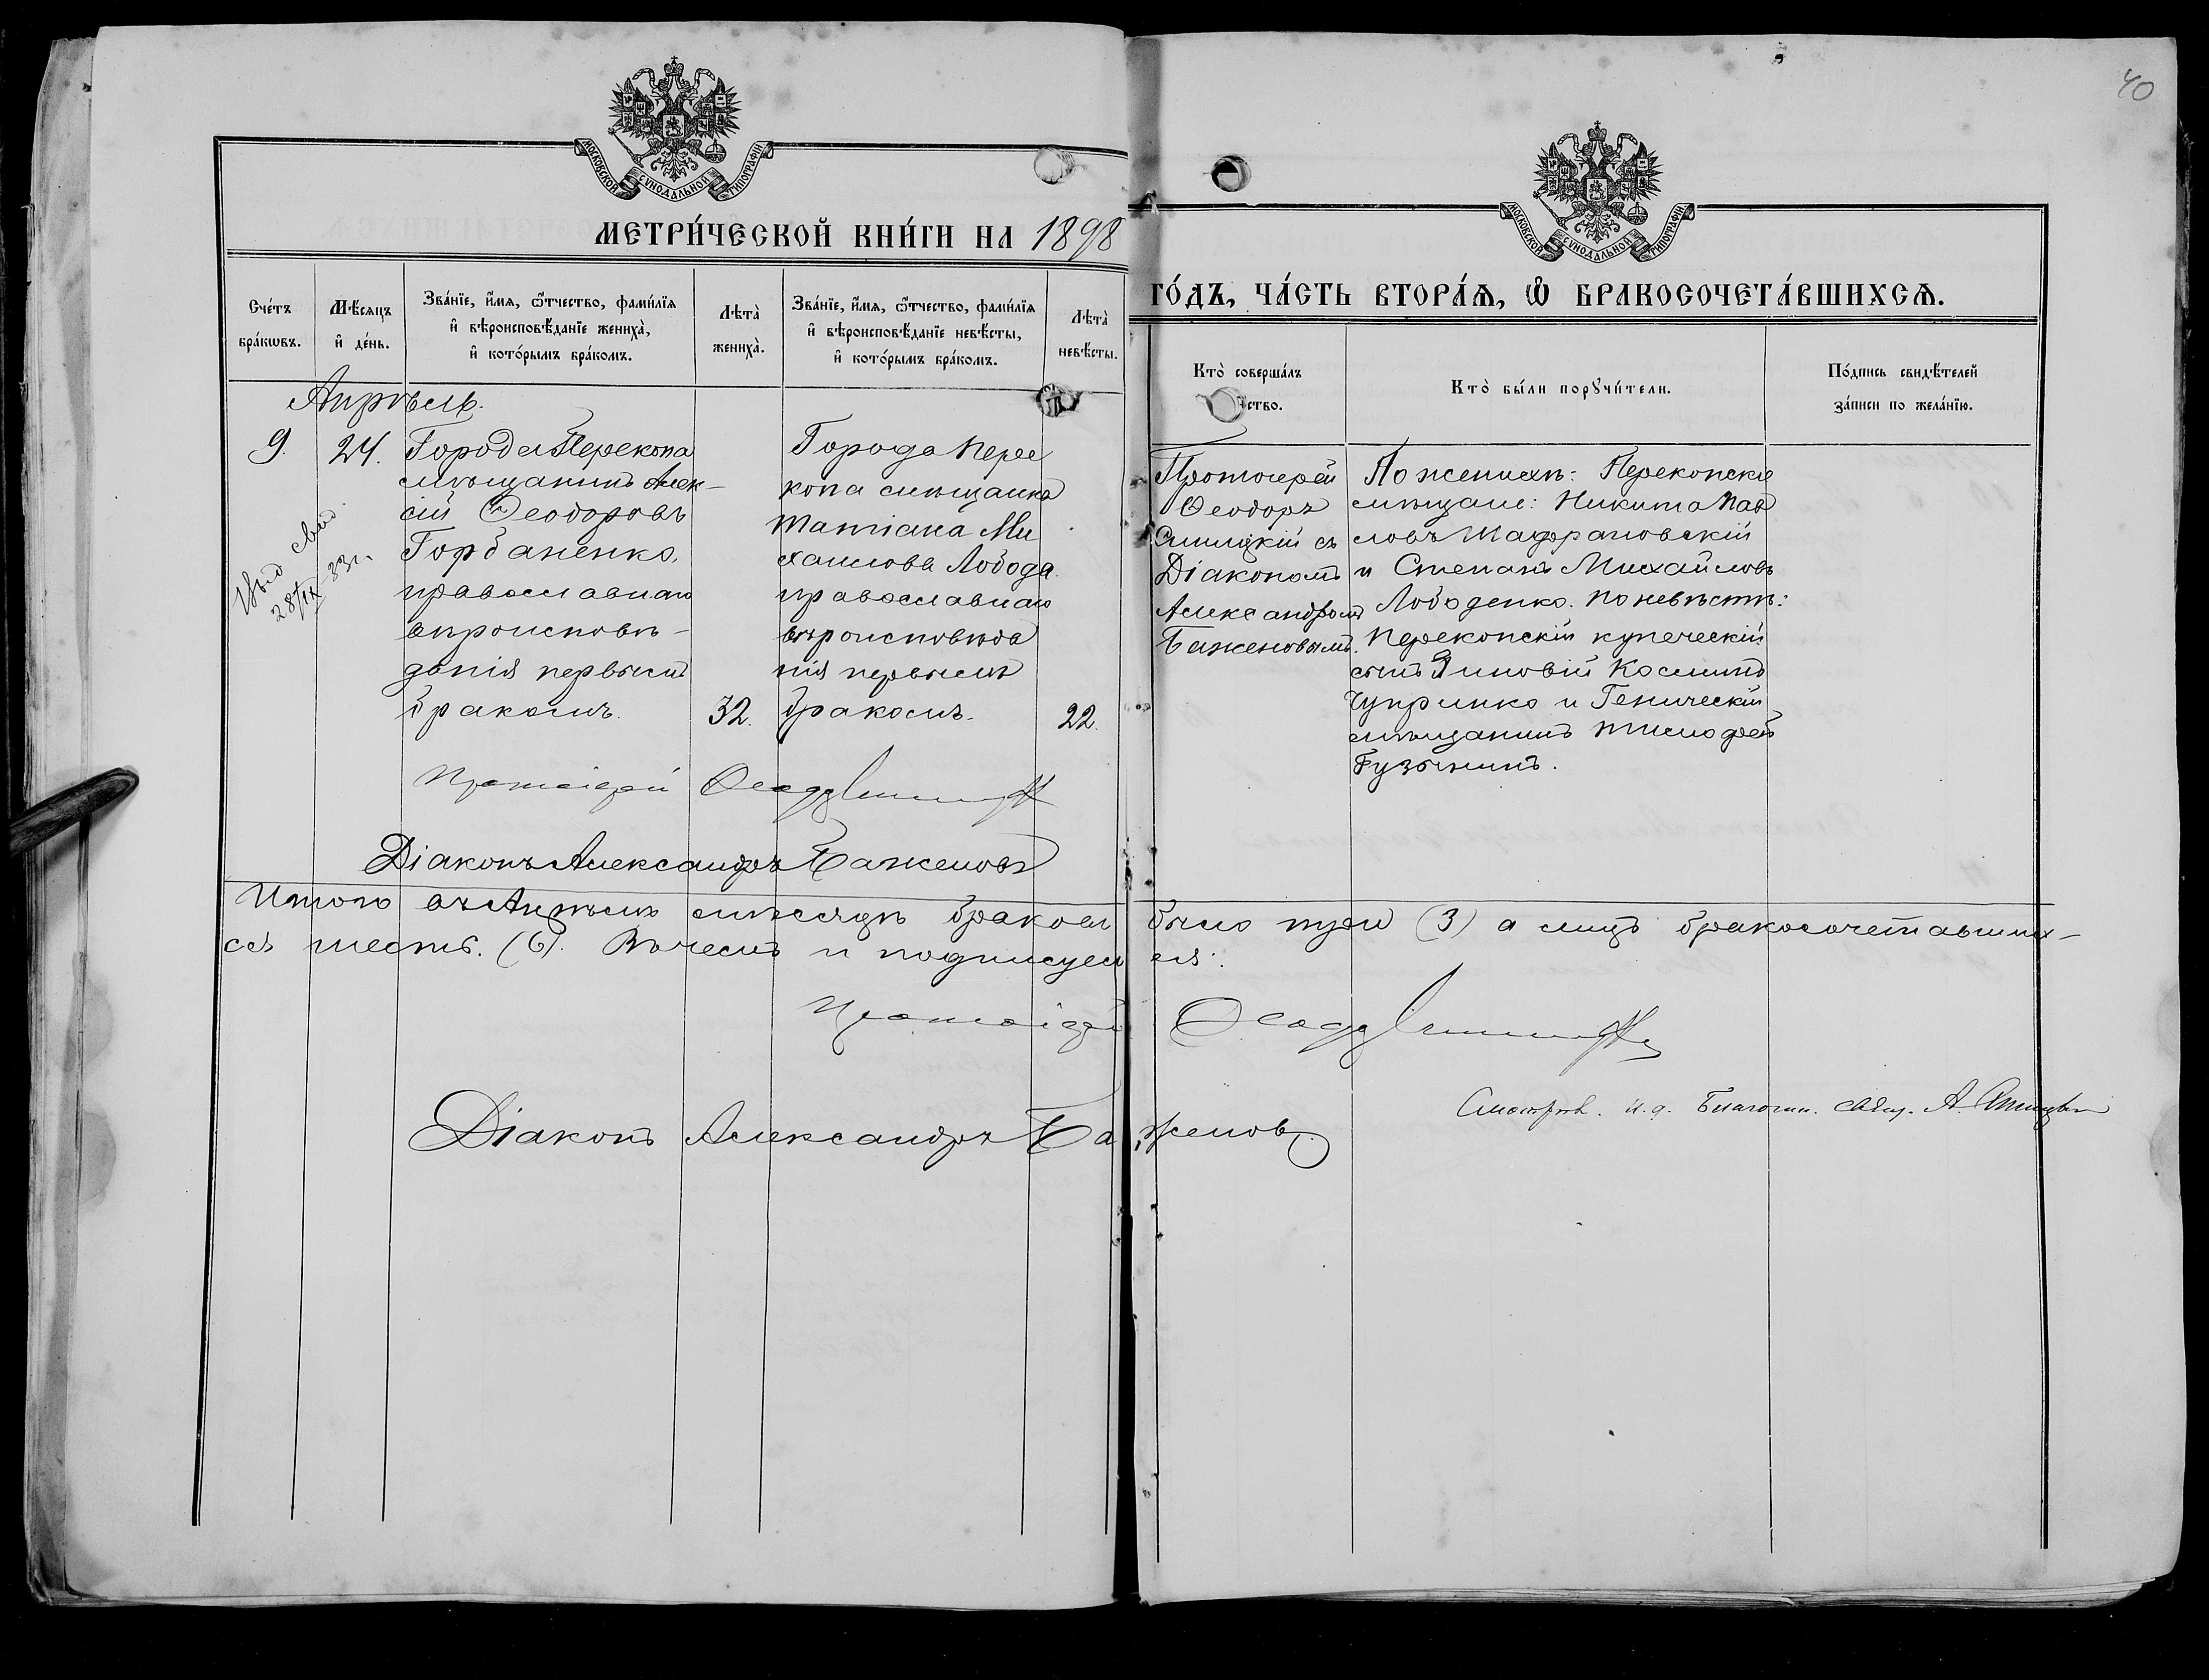 40
МОСКОВСКОЙ СУНОДАЛЬНОЙ ТИПОГРАФІИ
МОСКОВСКОЙ СУНОДАЛЬНОЙ ТИПОГРАФІИ
МЕТРИ́ЧЕСКОЙ КНИ́ГИ НА 1898
ГО́ДЪ, ЧА́СТЬ ВТОРА́Ѧ, Ѽ БРАКОСОЧЕТА́ВШИХСѦ.
Сче́тъ
бра́кѡвъ.
Мѣ́сѧцъ
и҆ де́нь.
Зва́нїе, и҆́мѧ, ѻ҆́тчество, фами́лїѧ
и҆ вѣроисповѣ́данїе жениха̀,
и҆ кото́рымъ бра́комъ.
Лѣта̀
жениха̀.
Зва́нїе, и҆́мѧ, ѻ҆́тчество, фами́лїѧ
и҆ вѣроисповѣ́данїе невѣ́сты,
и҆ кото́рымъ бра́комъ.
Лѣта̀
невѣ́сты.
Кто̀ соверша́лъ
ство.
Кто̀ бы́ли порꙋчи́тели.
По́дпись свидѣ́телей
за́писи по жела́нїю.
Апрѣль.
9.
24.
Города Перекопа
мѣщанинъ Алек-
сій Ѳеодоровъ
Горбаненко,
православнаго
вѣроисповѣ-
данія первымъ
бракомъ.
32.
Города Пере
копа мѣщанка
Татіана Ми
хаилова Лобода
православнаго
вѣроисповѣда
нія первымъ
бракомъ.
22.
Протоіерей
Ѳеодоръ
съ
Діакономъ
Александромъ
Баженовымъ.
По женихѣ: Перекопскіе
мѣщане: Никита Пав
ловъ Шафрановскій
и Степанъ Михайловъ
Лободенко. По невѣстѣ:
Перекопскій купеческій
сынъ Зиновій Косминъ
Чупринко и Геническій
мѣщанинъ Тимофей
Гузынинъ.
28/IX 33г.
Протоіерей
Діаконъ Александръ Баженовъ
Итого въ Апрѣлѣ мѣсяцѣ браковъ было три (3) а лицъ бракосочетавших-
ся шесть. (6). Въ чемъ и подписуемся:
Протоіерей
Діаконъ Александръ Баженовъ
и.д. Благочин. свящ. А.